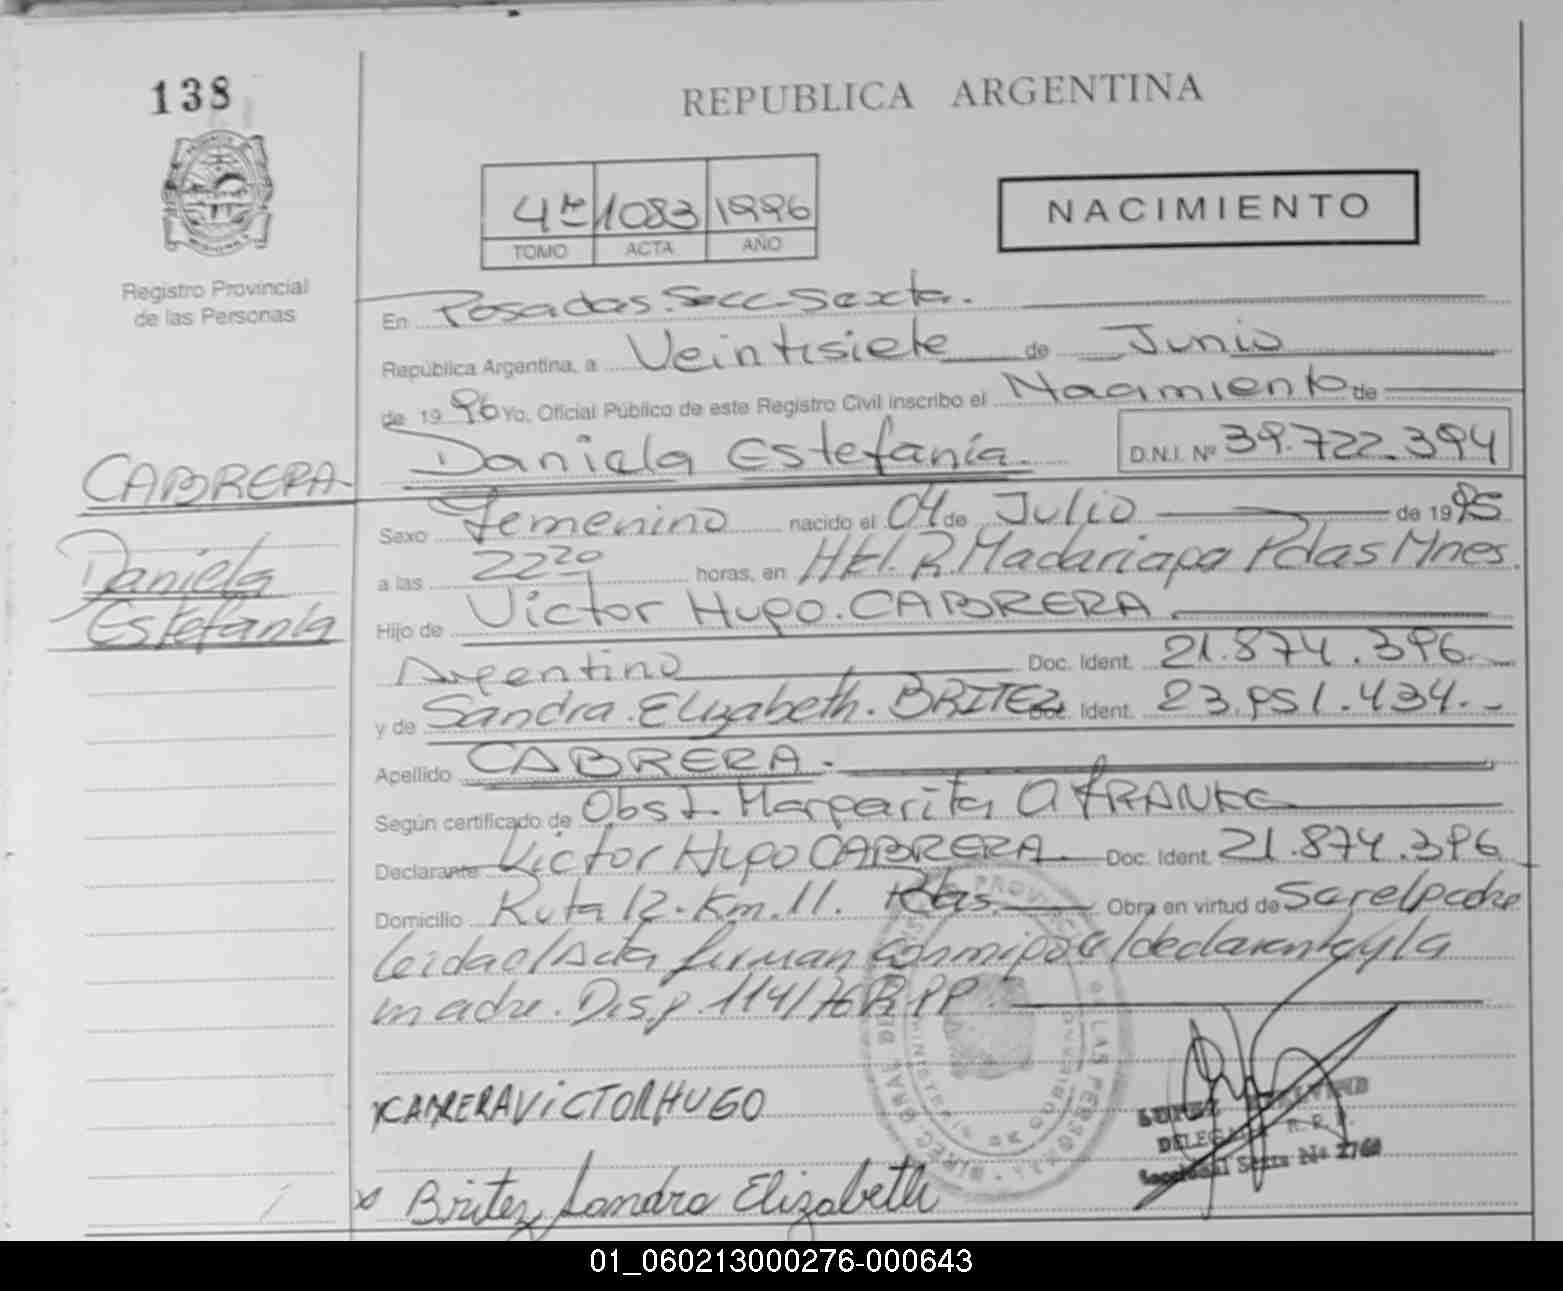 138
REPUBLICA ARGENTINA
4to 1083 1996
TOMO ACTA AÑO
NACIMIENTO
Registro Provincial
de las Personas
En Posadas. Secc. Sexta.
República Argentina, a Veintisiete de Junio
de 1996 Yo, Oficial Público de este Registro Civil inscribo el Nacimiento de
Daniela Estefanía. D.N.I. Nº 39.722.394
CABRERA
Daniela
Estefanía
Sexo Femenino nacido el 04 de Julio de 1995
a las 22 20 horas, en Htl. R. Madariaga Pdas Mnes.
Hijo de Victor Hugo. CABRERA
Argentino Doc. Ident. 21.874.396.
y de Sandra. Elizabeth. BRITEZ Doc. Ident. 23.951.434.-
Apellido CABRERA.
Según certificado de Obst. Margarita O FRANKE
Declarante Victor Hugo CABRERA. Doc. Ident. 21.874.396
Domicilio Ruta 12. Km. 11. Pdas. Obra en virtud de Ser el padre
Leida el Acta firman conmigo el declarante y la
madre. Disp. 114/76 R.P.P.
x CABRERA VICTOR HUGO
x Britez Sandra Elizabeth
DELEGADA R. R. P.
Seccional Sexta Nº 2760
01_060213000276-000643